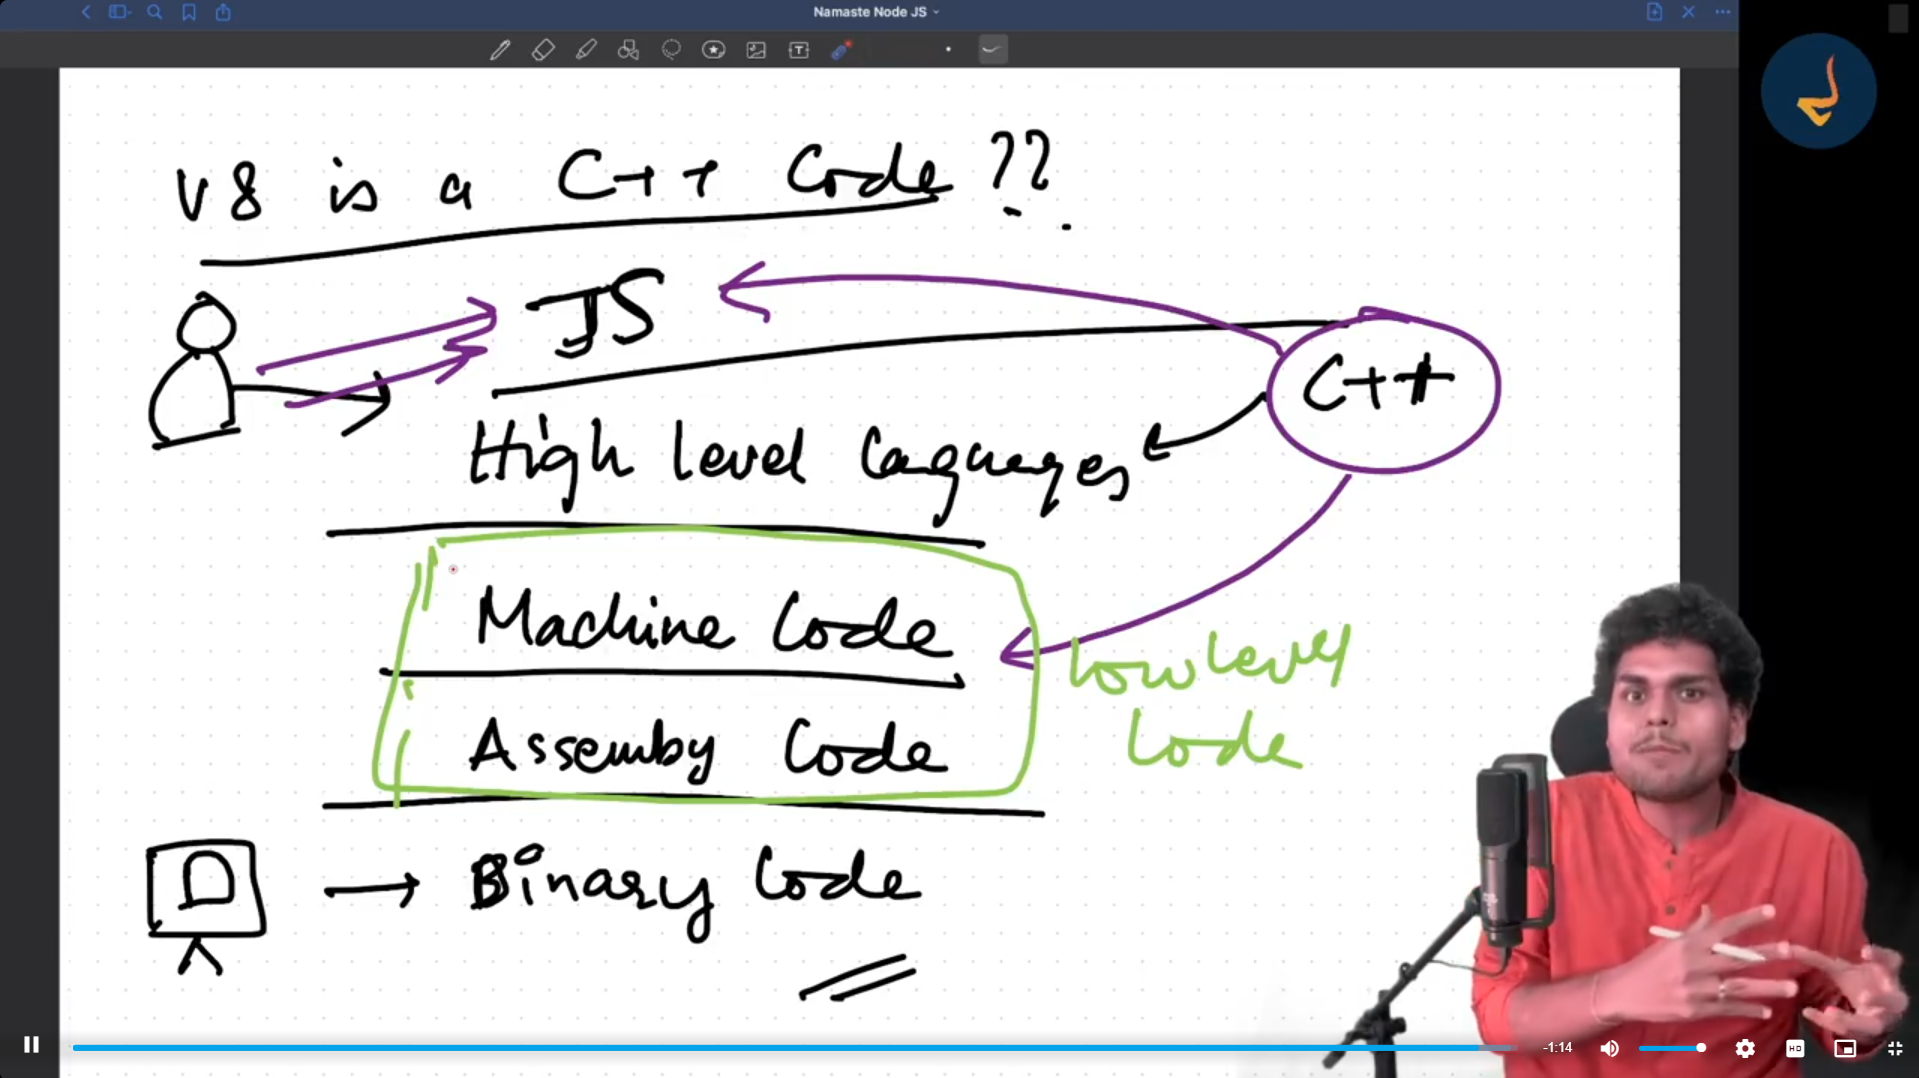 Namaste Node JS
V8 is a C++ Code ??
JS
C++
High level languages
Machine Code
Low level
Code
Assemby Code
Binary Code
-1:14
HD